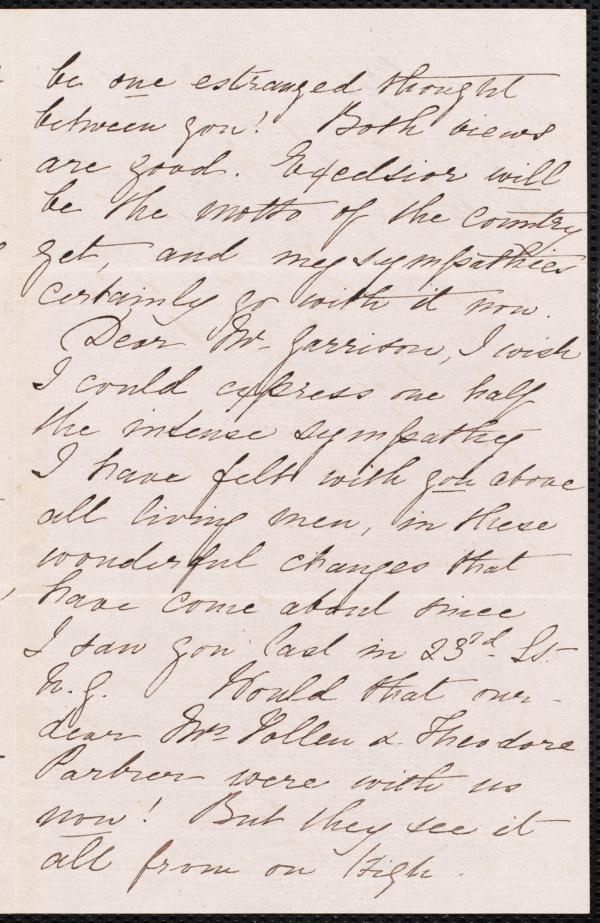 be one estranged thought
between you! Both views
are good. Excelsior will
be the motto of the country
yet, and my sympathies
certainly go with it now.
Dear Mr. Garrison, I wish
I could express one half
the intense sympathy
I have felt with you above
all living men, in these
wonderful changes that
have come about since
I saw you last in 23rd St.
N.Y. Would that our
dear Mrs Follen & Theodore
Parker were with us
now! But they see it
all from on High.